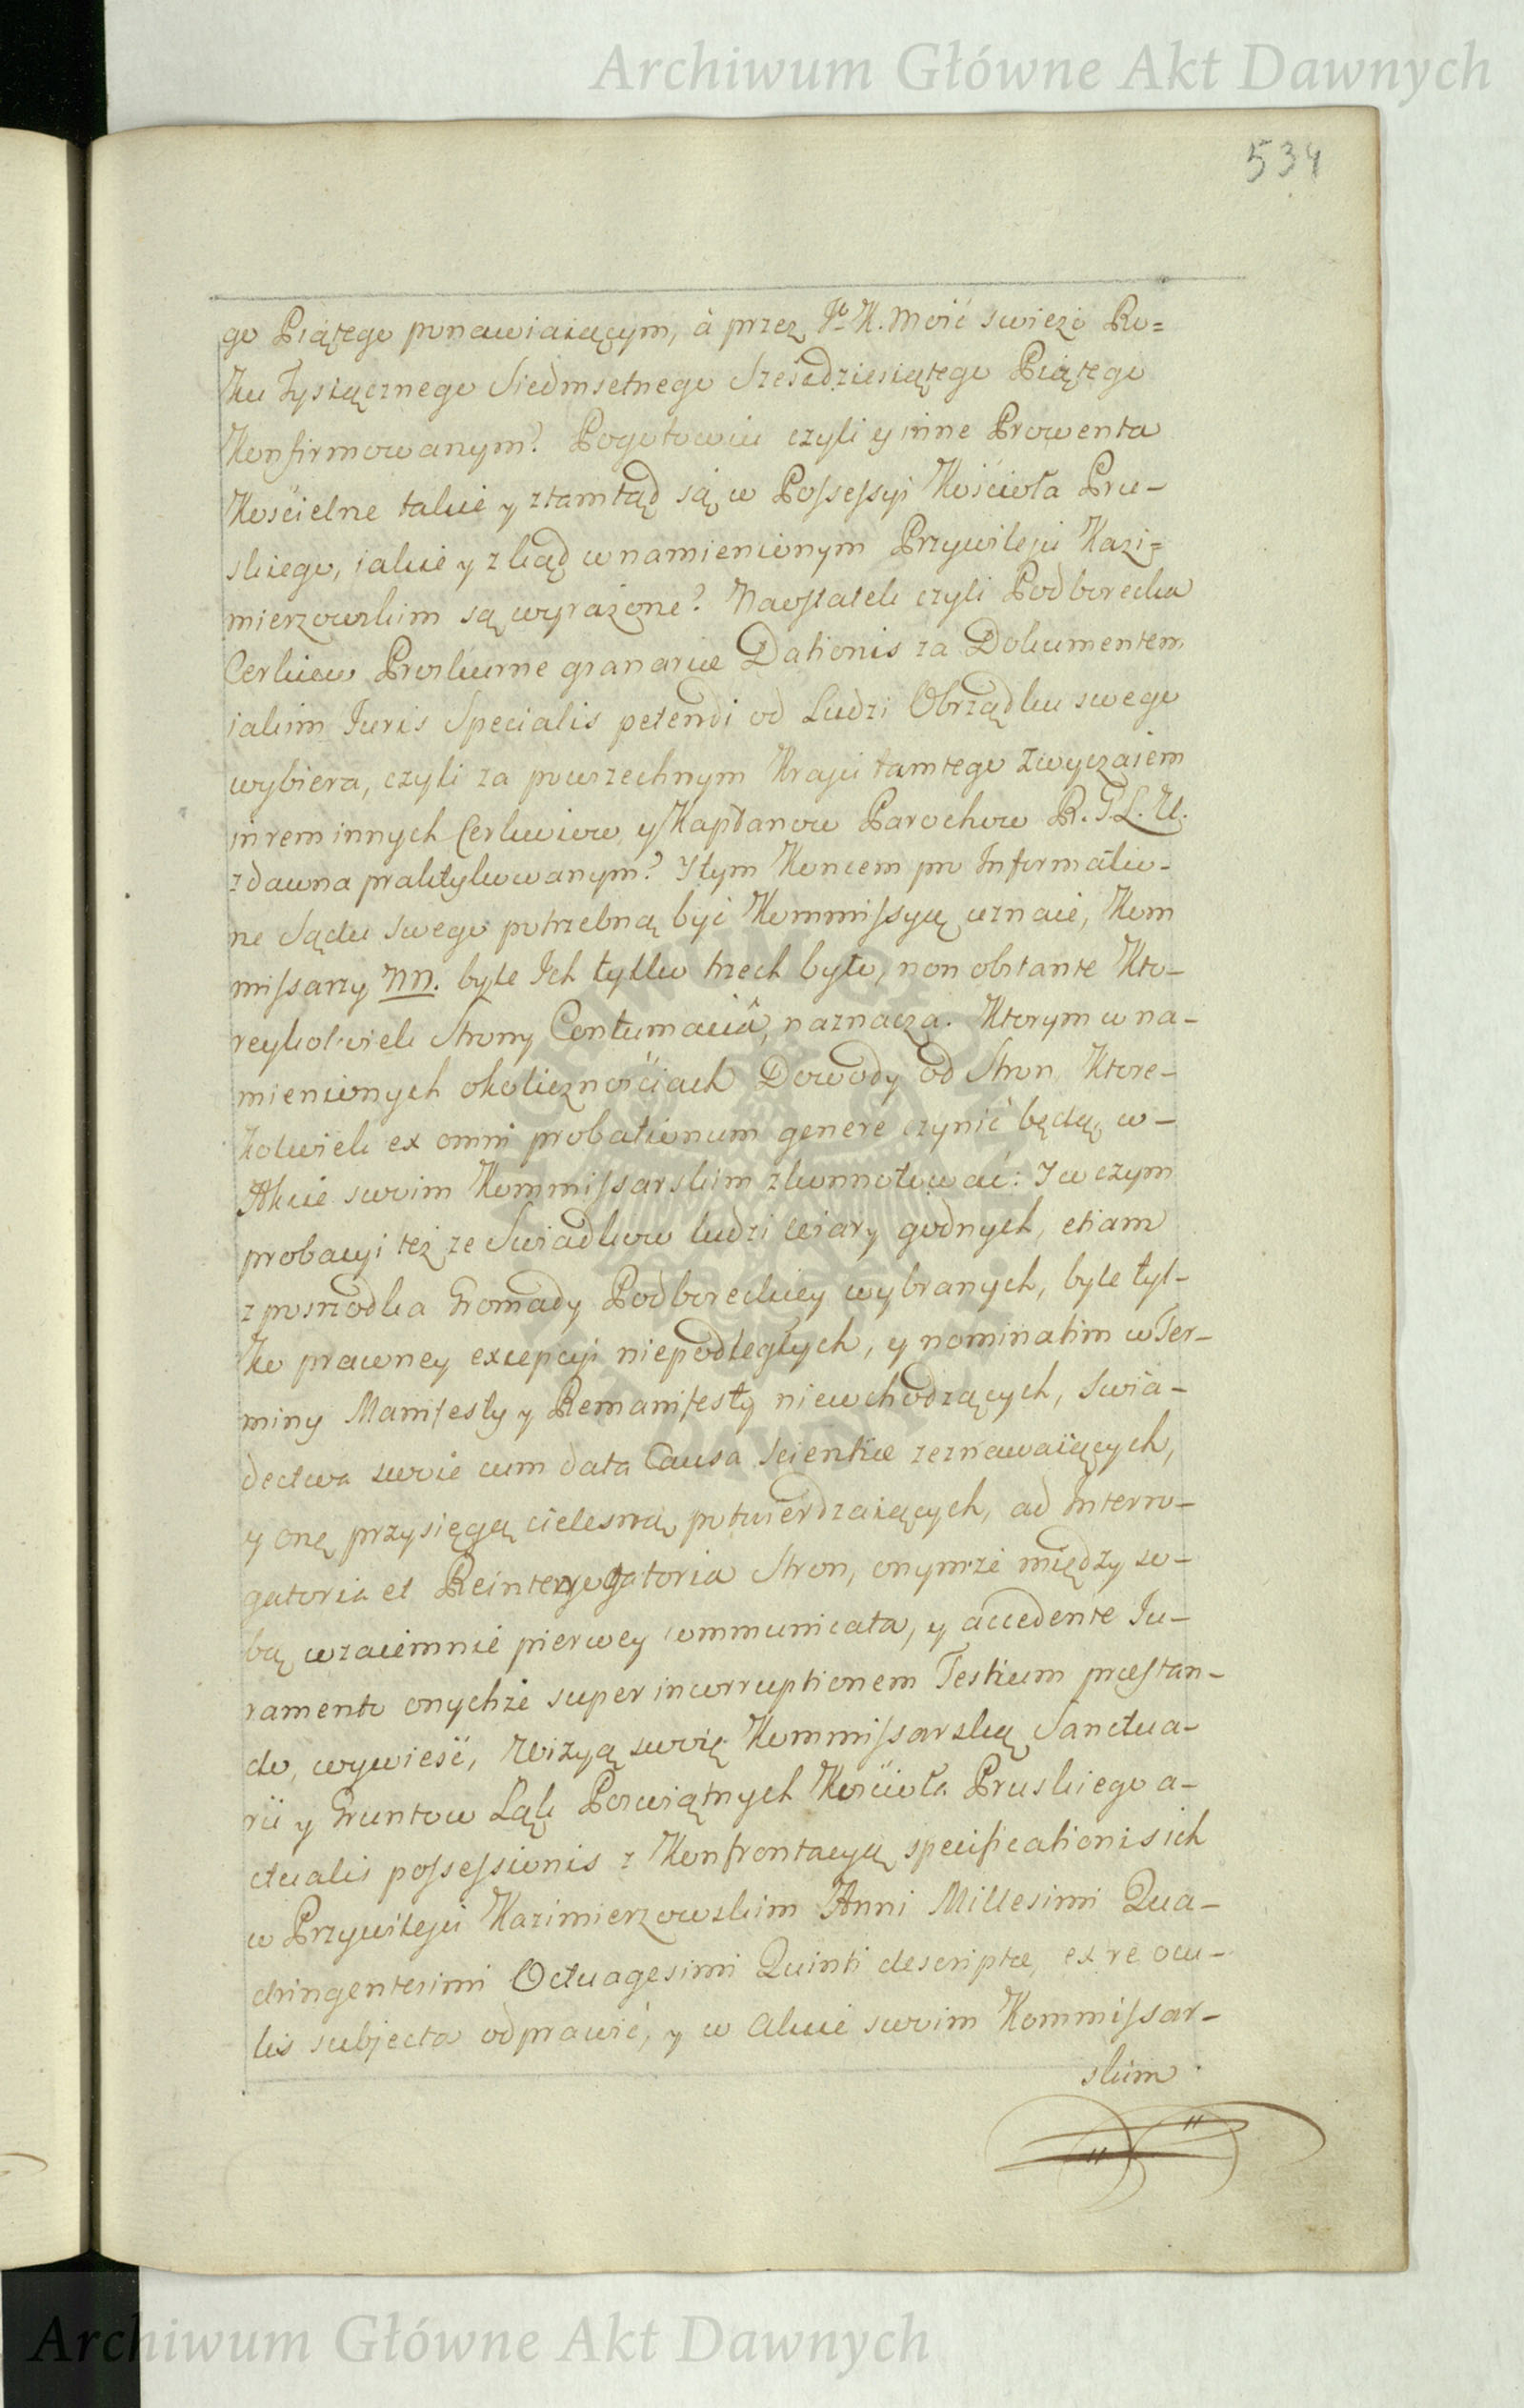 Archiwum Główne Akt Dawnych
534
go Piątego ponawiaiącym, à przez Jo K. Mość swieżo Ro=
ku Tysiącznego Siedmsetnego Sześcdziesiątego Piątego
Konfirmowanym? Pogotowiu czyli y inne Prowenta
Kościelne takie y ztamtąd są w Possessyi Kościoła Pru-
skiego, iakie y zkąd wnamienionym Przywileju Kazi=
mierzowskim są wyrażone? Naostatek czyli Podborecka
Cerkiew Proskurne granariæ Dationis za Dokumentem
iakim Juris Specialis petendi od Ludzi Obrządku swego
wybiera, czyli za powszechnym Kraju tamtego zwyczaiem
in rem innych Cerkwiow y Kapłanow Parochow R. G. L. U.
zdawna praktykowanym? Y tym Koncem pro Informatio-
ne Sądu swego potrzebną być Kommissyą uznaie, Kom
missarzy NN. byle Ich tylko trzech było, non obstante Kto-
reykolwiek Strony Contumaciâ, naznacza. Ktorym w na-
mienionych okolicznościach Dowody od Stron Ktore-
kolwiek ex omni probationum genere czynić będą, w-
Akcie swoim Kommissarskim zkonnotować: Y w czym
probacyi też ze Swiadkow ludzi wiary godnych, etiam
z posrzodka Gromady Podboreckiey wybranych, byle tyl-
ko prawney excepcyi niepodległych, y nominatim w Ter-
miny Manifesty y Remanifesty niewchodzących, swia-
dectwa swoie cum data Causa scientiæ zeznawaiących,
y onę przysięgą cielesną potwierdzaiących, ad Interro-
gatoria et Reinterrogatoria Stron, onymże między so-
bą wzaiemnie pierwey communicata, y accedente Ju-
ramento onychże super incorruptionem Testium præstan-
do, wywieść, Wizyą swoię Kommissarską Sanctua-
rii y Gruntow Łąk Poswiątnych Kościoła Pruskiego a-
ctualis possessionis z Konfrontacyą specificationis ich
w Przywileju Kazimierzowskim Anni Millesimi Qua-
dringentesimi Octuagesimi Quinti descriptæ, ex re ocu-
lis subjecta odprawić, y w Akcie swoim Kommissar-
skim
Archiwum Główne Akt Dawnych